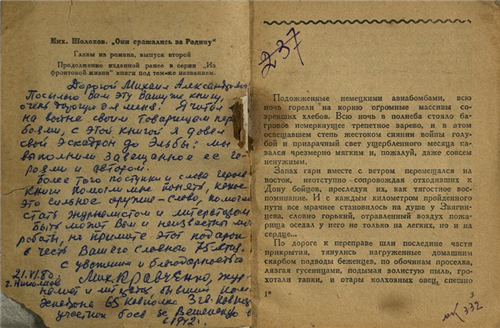 Мих. Шолохов. „Они сражались за Родину"
Главы из романа, выпуск второй
Продолжение изданной ранее в серии „Из
фронтовой жизни" книги под тем же названием.
Дорогой Михаил Александрович!
Посылаю Вам эту Вашу же книгу,
очень дорогую для меня. Я читал
на войне своим товарищам перед
боями, с этой книгой я довел
свой эскадрон до Эльбы: мы
выполнили завещанное ее ге-
роями и автором.
Более того поступки и слова героев
книги помогли мне понять, какое
это сильное оружие - слово, помогли
стать журналистом и литератором
Быть может Вам и неизвестен
но примите этот подарок
в честь Вашего славного 75-летия.
С уважением и благодарностью
21.VI.80 г.
г. Николаев
Мих. Кравченко, жур-
налист и писатель, бывший ком.
эскадрона 65 кавполка 3 гв. кавдив.
участник боев за Вешенскую в
1942.
237
Подожженные немецкими авиабомбами, всю
ночь горели на корню огромные массивы со-
зревших хлебов. Всю ночь в полнеба стояло ба-
гровое немеркнущее трепетное зарево, и в этом
освещавшем степь жестоком сиянии войны голу-
бой и призрачный свет ущербленного месяца ка-
зался чрезмерно мягким и, пожалуй, даже совсем
ненужным.
Запах гари вместе с ветром перемещался на
восток, неотступно сопровождая отходивших к
Дону бойцов, преследуя их, как тягостное вос-
поминание. И с каждым километром пройденного
пути все мрачнее становилось на душе у Звягин-
цева, словно горький, отравленный воздух пожа-
рища оседал у него не только на легких, но и на
сердце..
По дороге к переправе шли последние части
прикрытия, тянулись нагруженные домашним
скарбом подводы беженцев, по обочинам проселка,
лязгая гусеницами, подымая волнистую пыль, гро-
хотали танки, и отары колхозных овец, спешно
1*
3
332